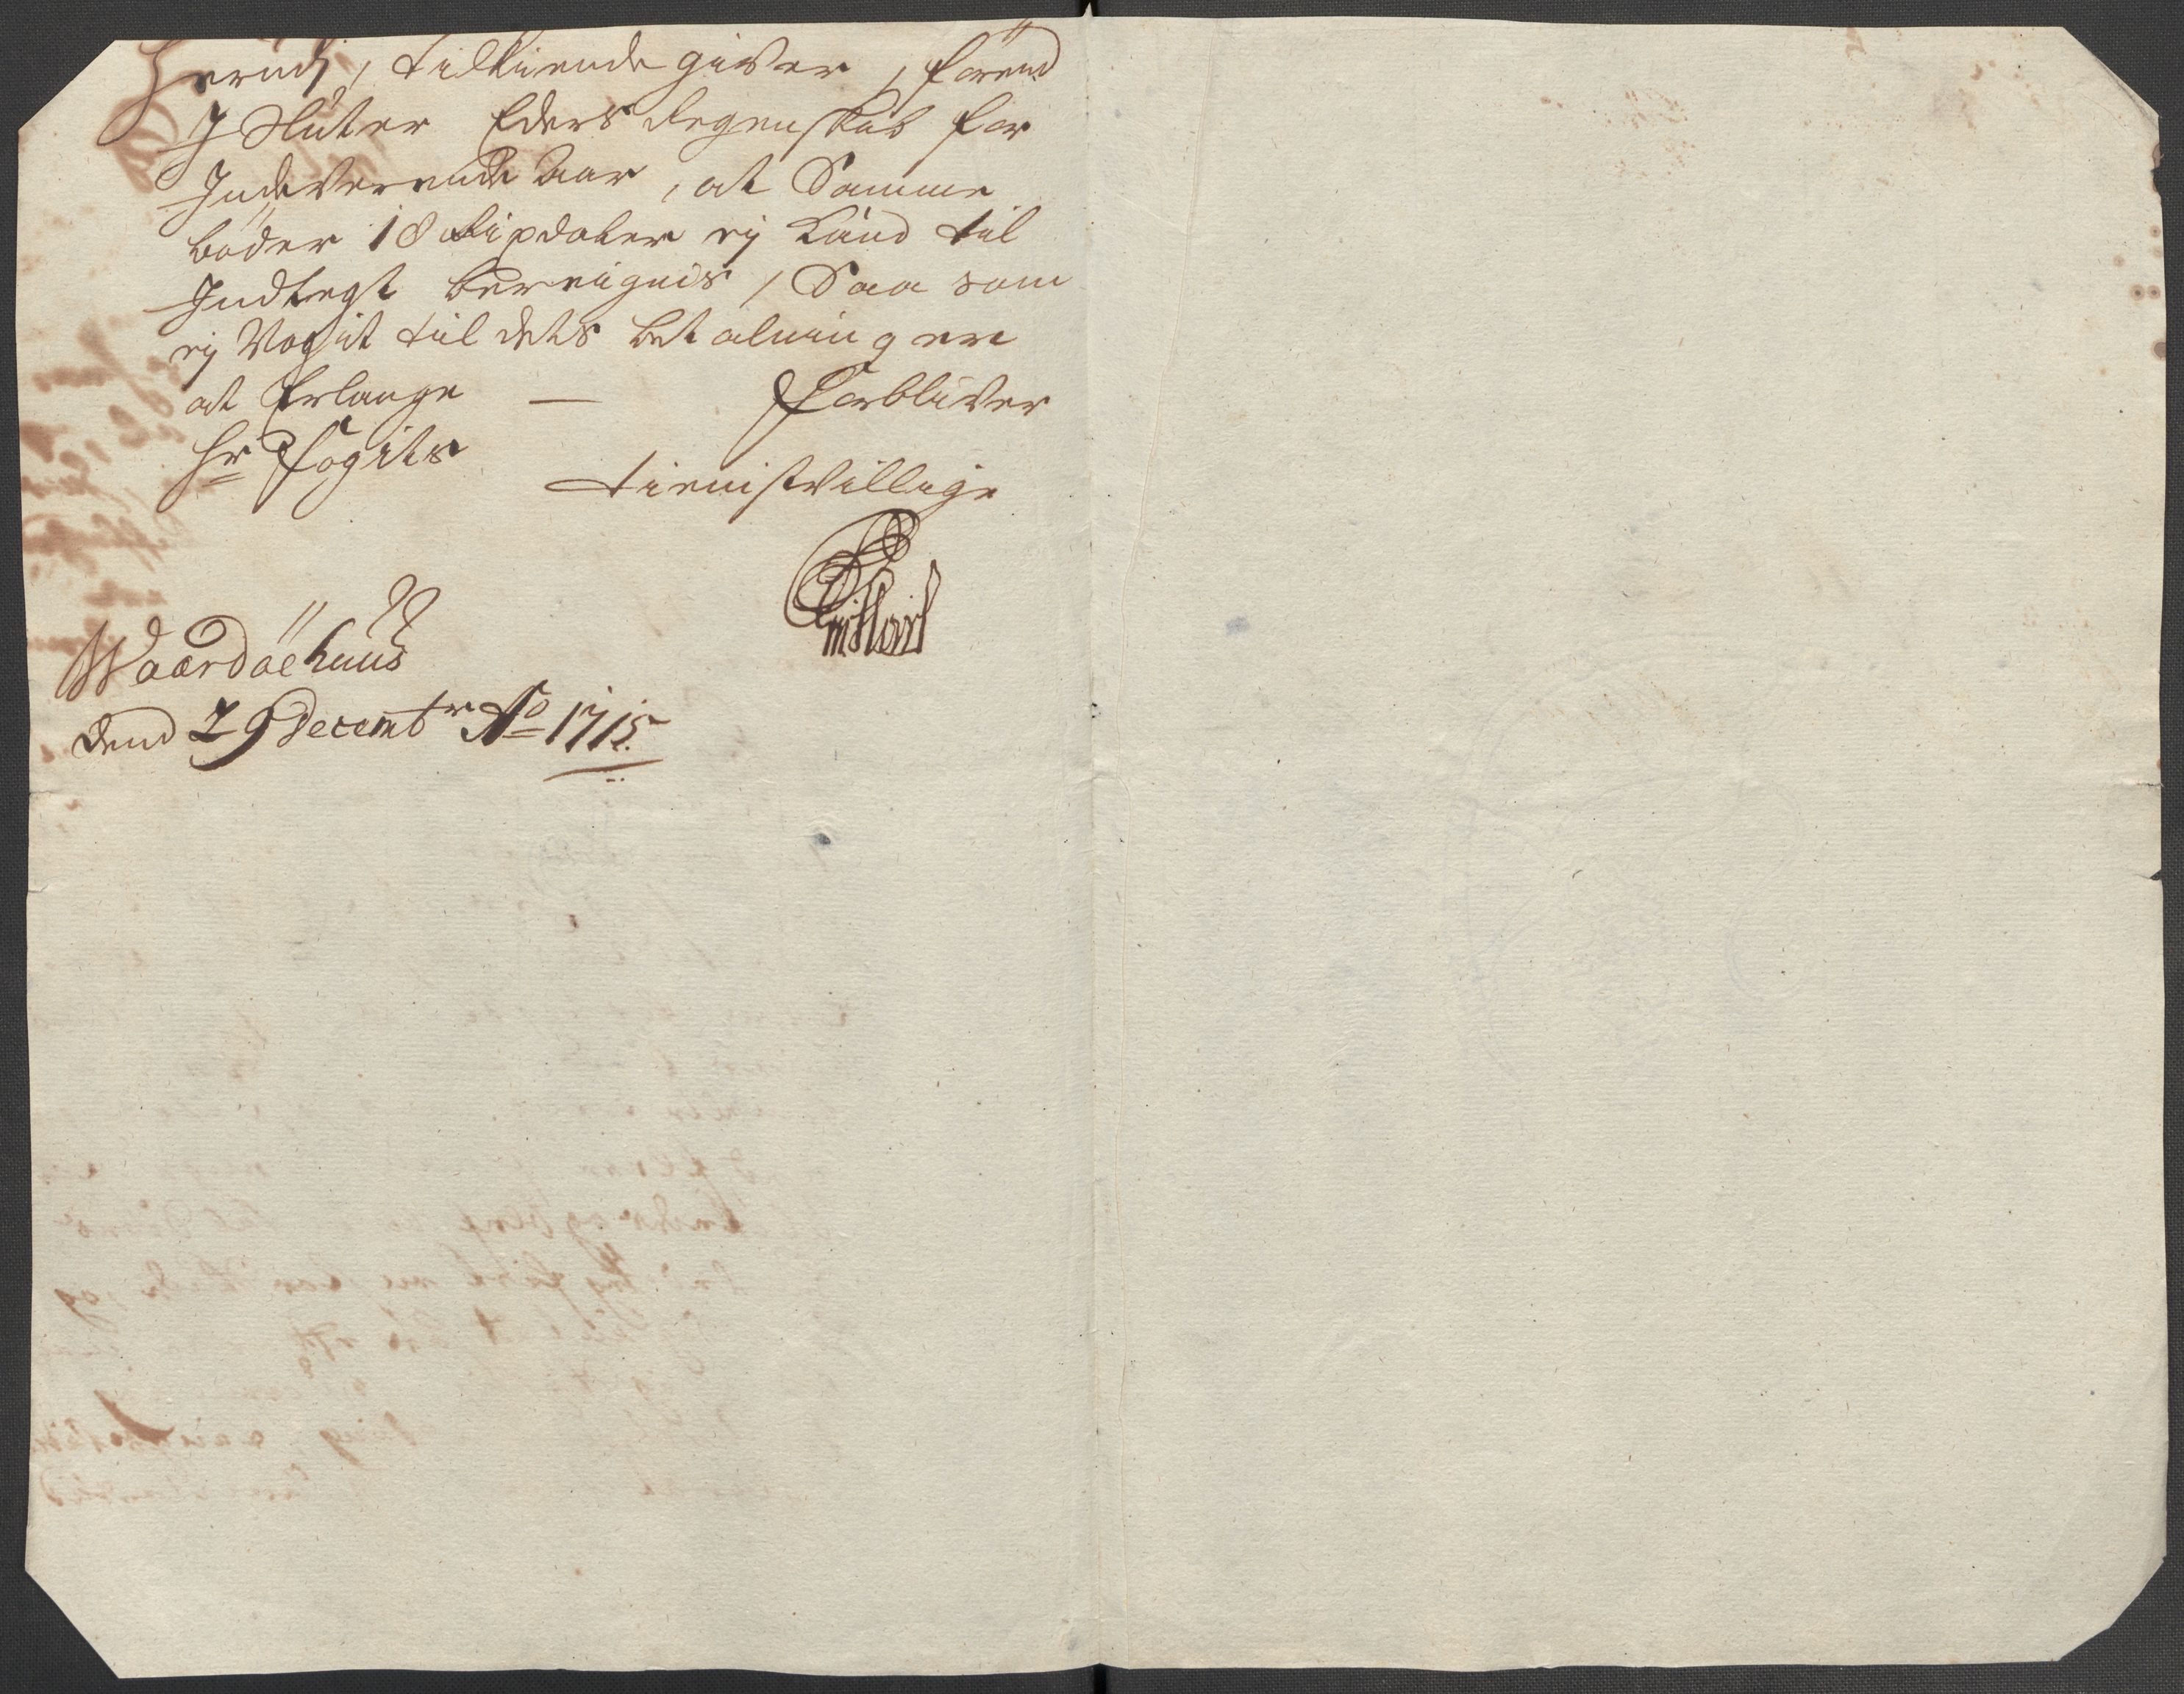 herudj, tilkiende giver, förend
J Sluter Eders Regenskab for
Indeverende Aar, at Samme
böder 18 Rixdaler ej kand til
Indtegt bereignis, Saa som
ej Nogit til dets betalning er
at Erlange — Forbliver
Hr Fogits
tienistvillige
Waardöehuus
dend 29 Decembr Ao 1715